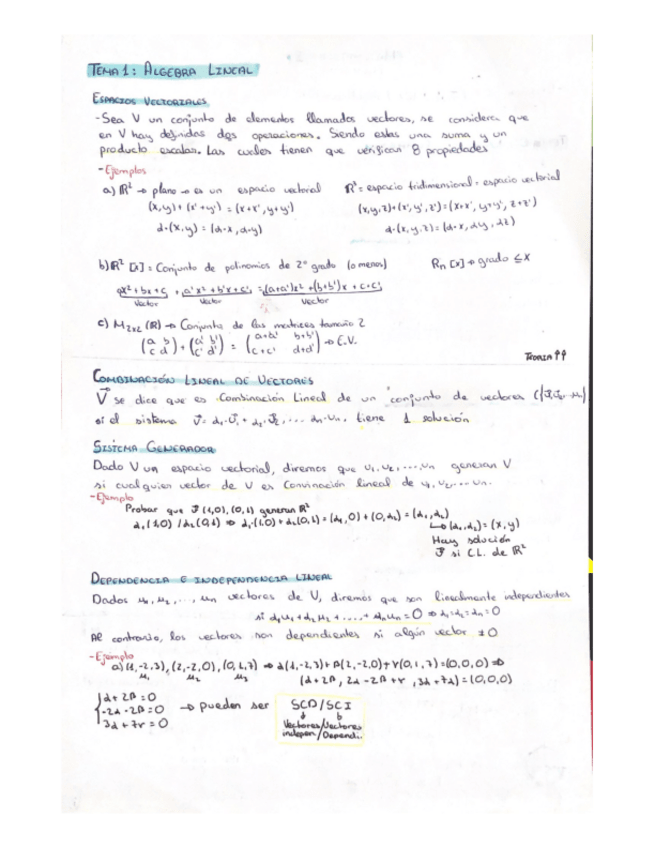 TEMA 1: ALGEBRA LINEAL
ESPACIOS VECTORIALES
-Sea V un conjunto de elementos llamados vectores, se considera que
en V hay definidas dos operaciones. Siendo estas una suma y un
producto escalar. Las cuales tienen que verificar 8 propiedades
-Ejemplos
a) R² → plano → es un espacio vectorial R³ = espacio tridimensional = espacio vectorial
(x,y)+(x'+y') = (x+x', y+y') (x,y,z)+(x',y',z')=(x+x', y+y', z+z')
α·(x,y) = (α·x, α·y) α·(x,y,z)=(α·x, αy, αz)
b) R² [x] = Conjunto de polinomios de 2º grado (o menos) Rn [x] → grado ≤ x
ax²+bx+c + a'x²+b'x+c' = (a+a')x² + (b+b')x + c+c'
Vector Vector Vector
c) M2x2 (R) → Conjunto de las matrices tamaño 2
(a b) + (a' b') = (a+a' b+b') → E.V.
(c d) (c' d') (c+c' d+d')
TEORIA ↑↑
COMBINACIÓN LINEAL DE VECTORES
V⃗ se dice que es Combinación Lineal de un conjunto de vectores
si el sistema v⃗ = α₁·U⃗₁ + α₂·U⃗₂, ... αn·Un, tiene 1 solución
SISTEMA GENERADOR
Dado V un espacio vectorial, diremos que u₁, u₂, ..., un generan V
si cualquier vector de V es Convinación lineal de u₁, u₂, ... un.
-Ejemplo
Probar que (1,0), (0,1) generan R²
α₁(1,0) / α₂(0,1) ⇒ α₁·(1,0) + α₂(0,1) = (α₁,0) + (0,α₂) = (α₁,α₂)
↳ (α₁,α₂) = (x,y)
Hay solución
v⃗ si C.L. de R²
DEPENDENCIA E INDEPENDENCIA LINEAL
Dados u₁, u₂, ..., un vectores de V, diremos que son linealmente independientes
si α₁u₁ + α₂u₂ + ... + αnun = 0 ⇒ α₁=α₂=αn=0
Al contrario, los vectores son dependientes si algún vector ≠ 0
-Ejemplo
a) (1,-2,3), (2,-2,0), (0,1,7) → α(1,-2,3)+β(2,-2,0)+γ(0,1,7)=(0,0,0) ⇒
u₁ u₂ u₃ (α+2β, 2α-2β+γ, 3α+7α) = (0,0,0)
α+2β=0
-2α-2β=0 → pueden ser SCD/SCI
3α+7γ=0
Vectores/Vectores
indepen/Dependi..